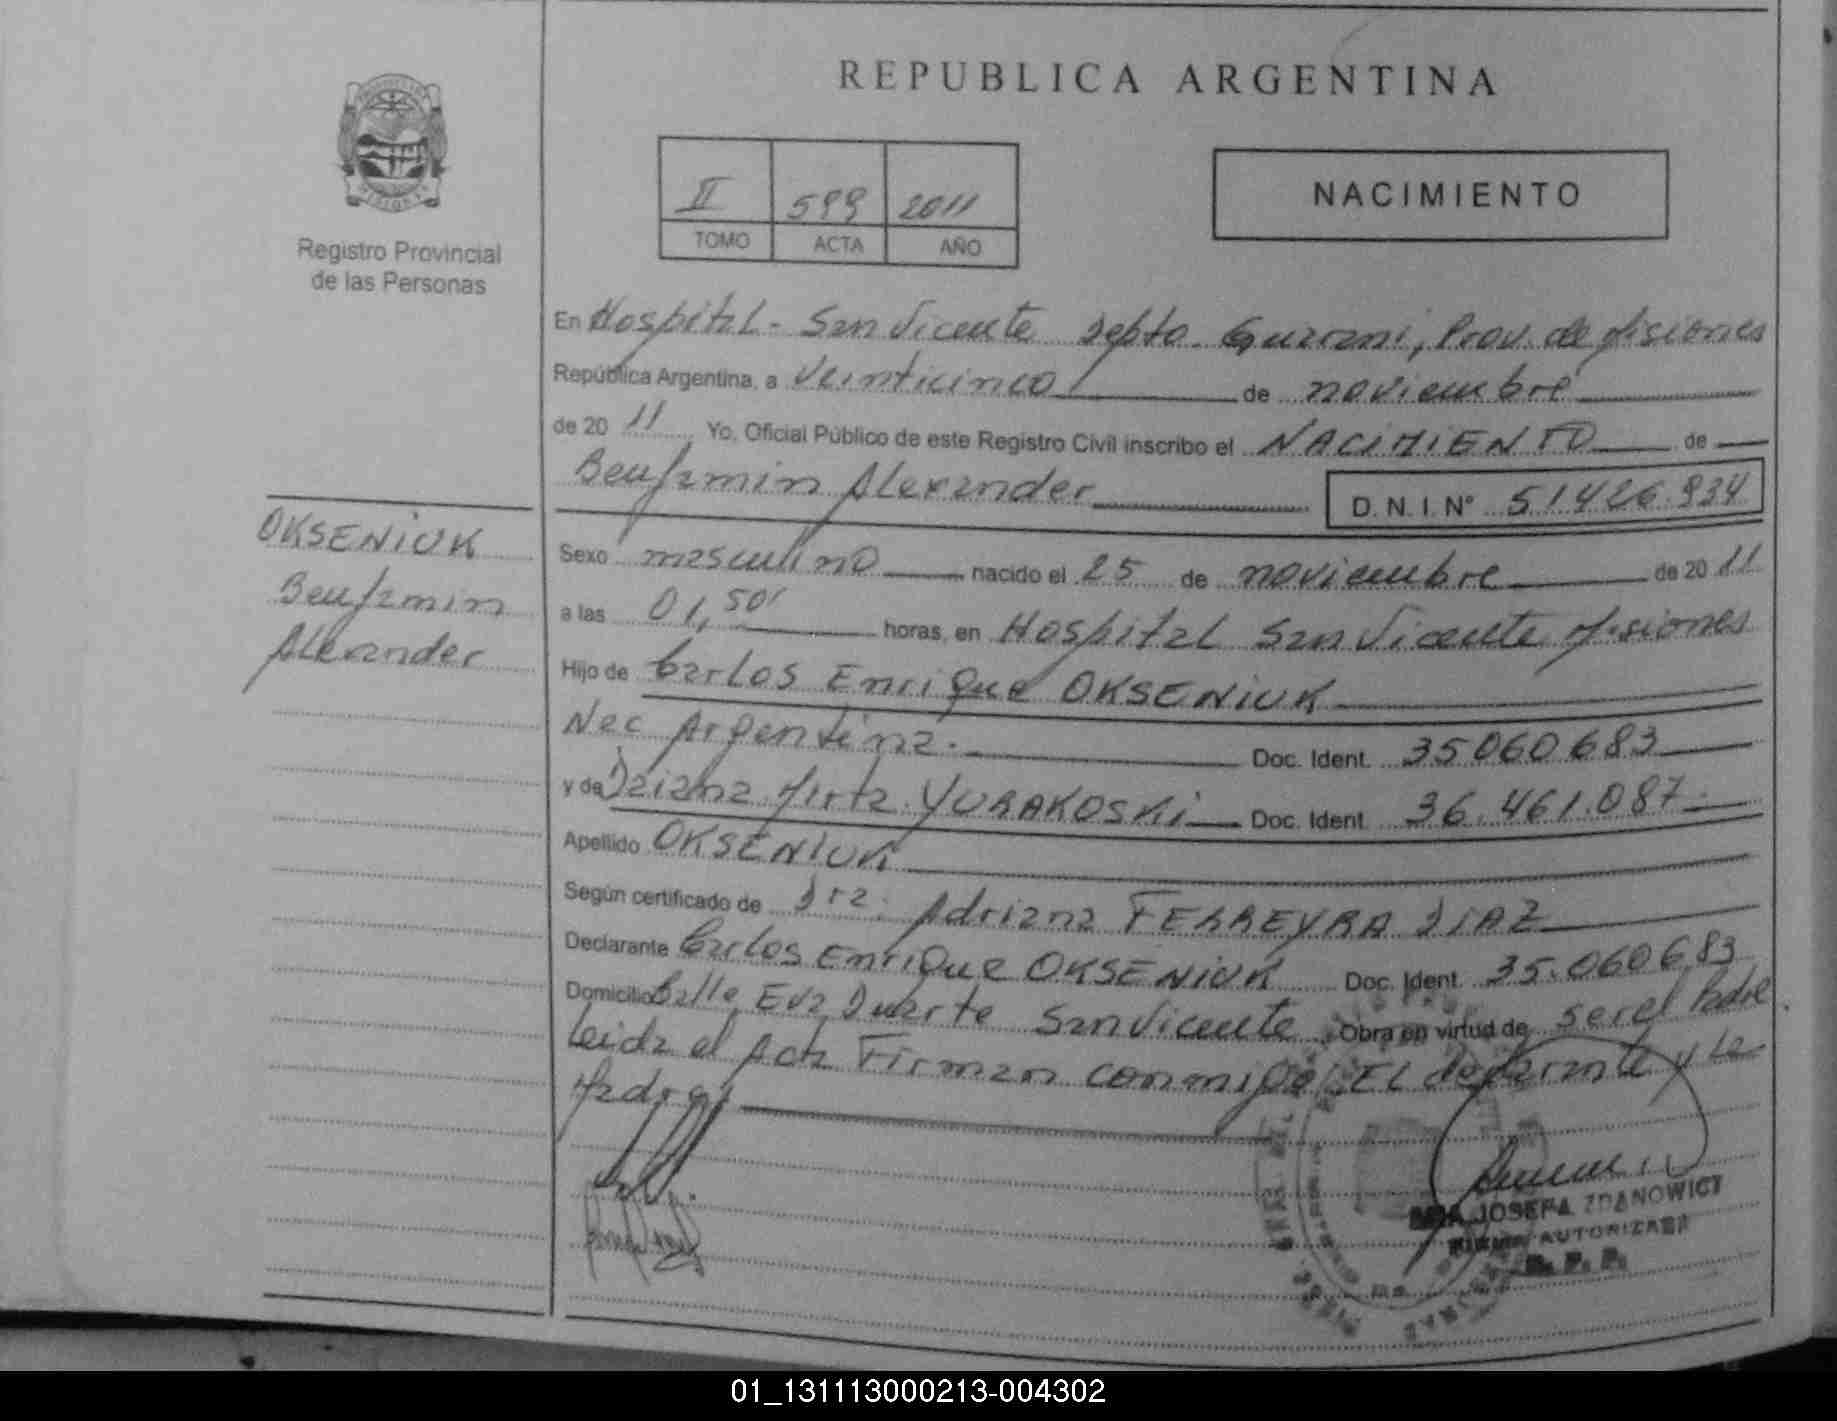 REPUBLICA ARGENTINA
Registro Provincial
de las Personas
II 599 2011
TOMO ACTA AÑO
NACIMIENTO
En Hospital - San Vicente Depto. Guarani, Prov. de Misiones
República Argentina, a Veinticinco de noviembre
de 20 11 Yo, Oficial Público de este Registro Civil inscribo el NACIMIENTO de
Benjamin Alexander D. N. I. N° 51426.934
OKSENIUK
Benjamin
Alexander
Sexo masculino nacido el 25 de noviembre de 20 11
a las 01,50' horas, en Hospital San Vicente Misiones
Hijo de Carlos Enrique OKSENIUK
Nac Argentina. Doc. Ident. 35060683
y de Daiana Mirta YURAKOSKI Doc. Ident. 36.461.087.
Apellido OKSENIUK
Según certificado de Dra. Adriana FERREYRA DIAZ
Declarante Carlos Enrique OKSENIUK Doc. Ident. 35.060683
Domicilio Calle Eva Duarte San Vicente Obra en virtud de ser el Padre
Leida el Acta Firman conmigo El declarante y La
Madre
JOSEFA ZDANOWICZ
AUTORIZADA
R. P. P.
01_131113000213-004302